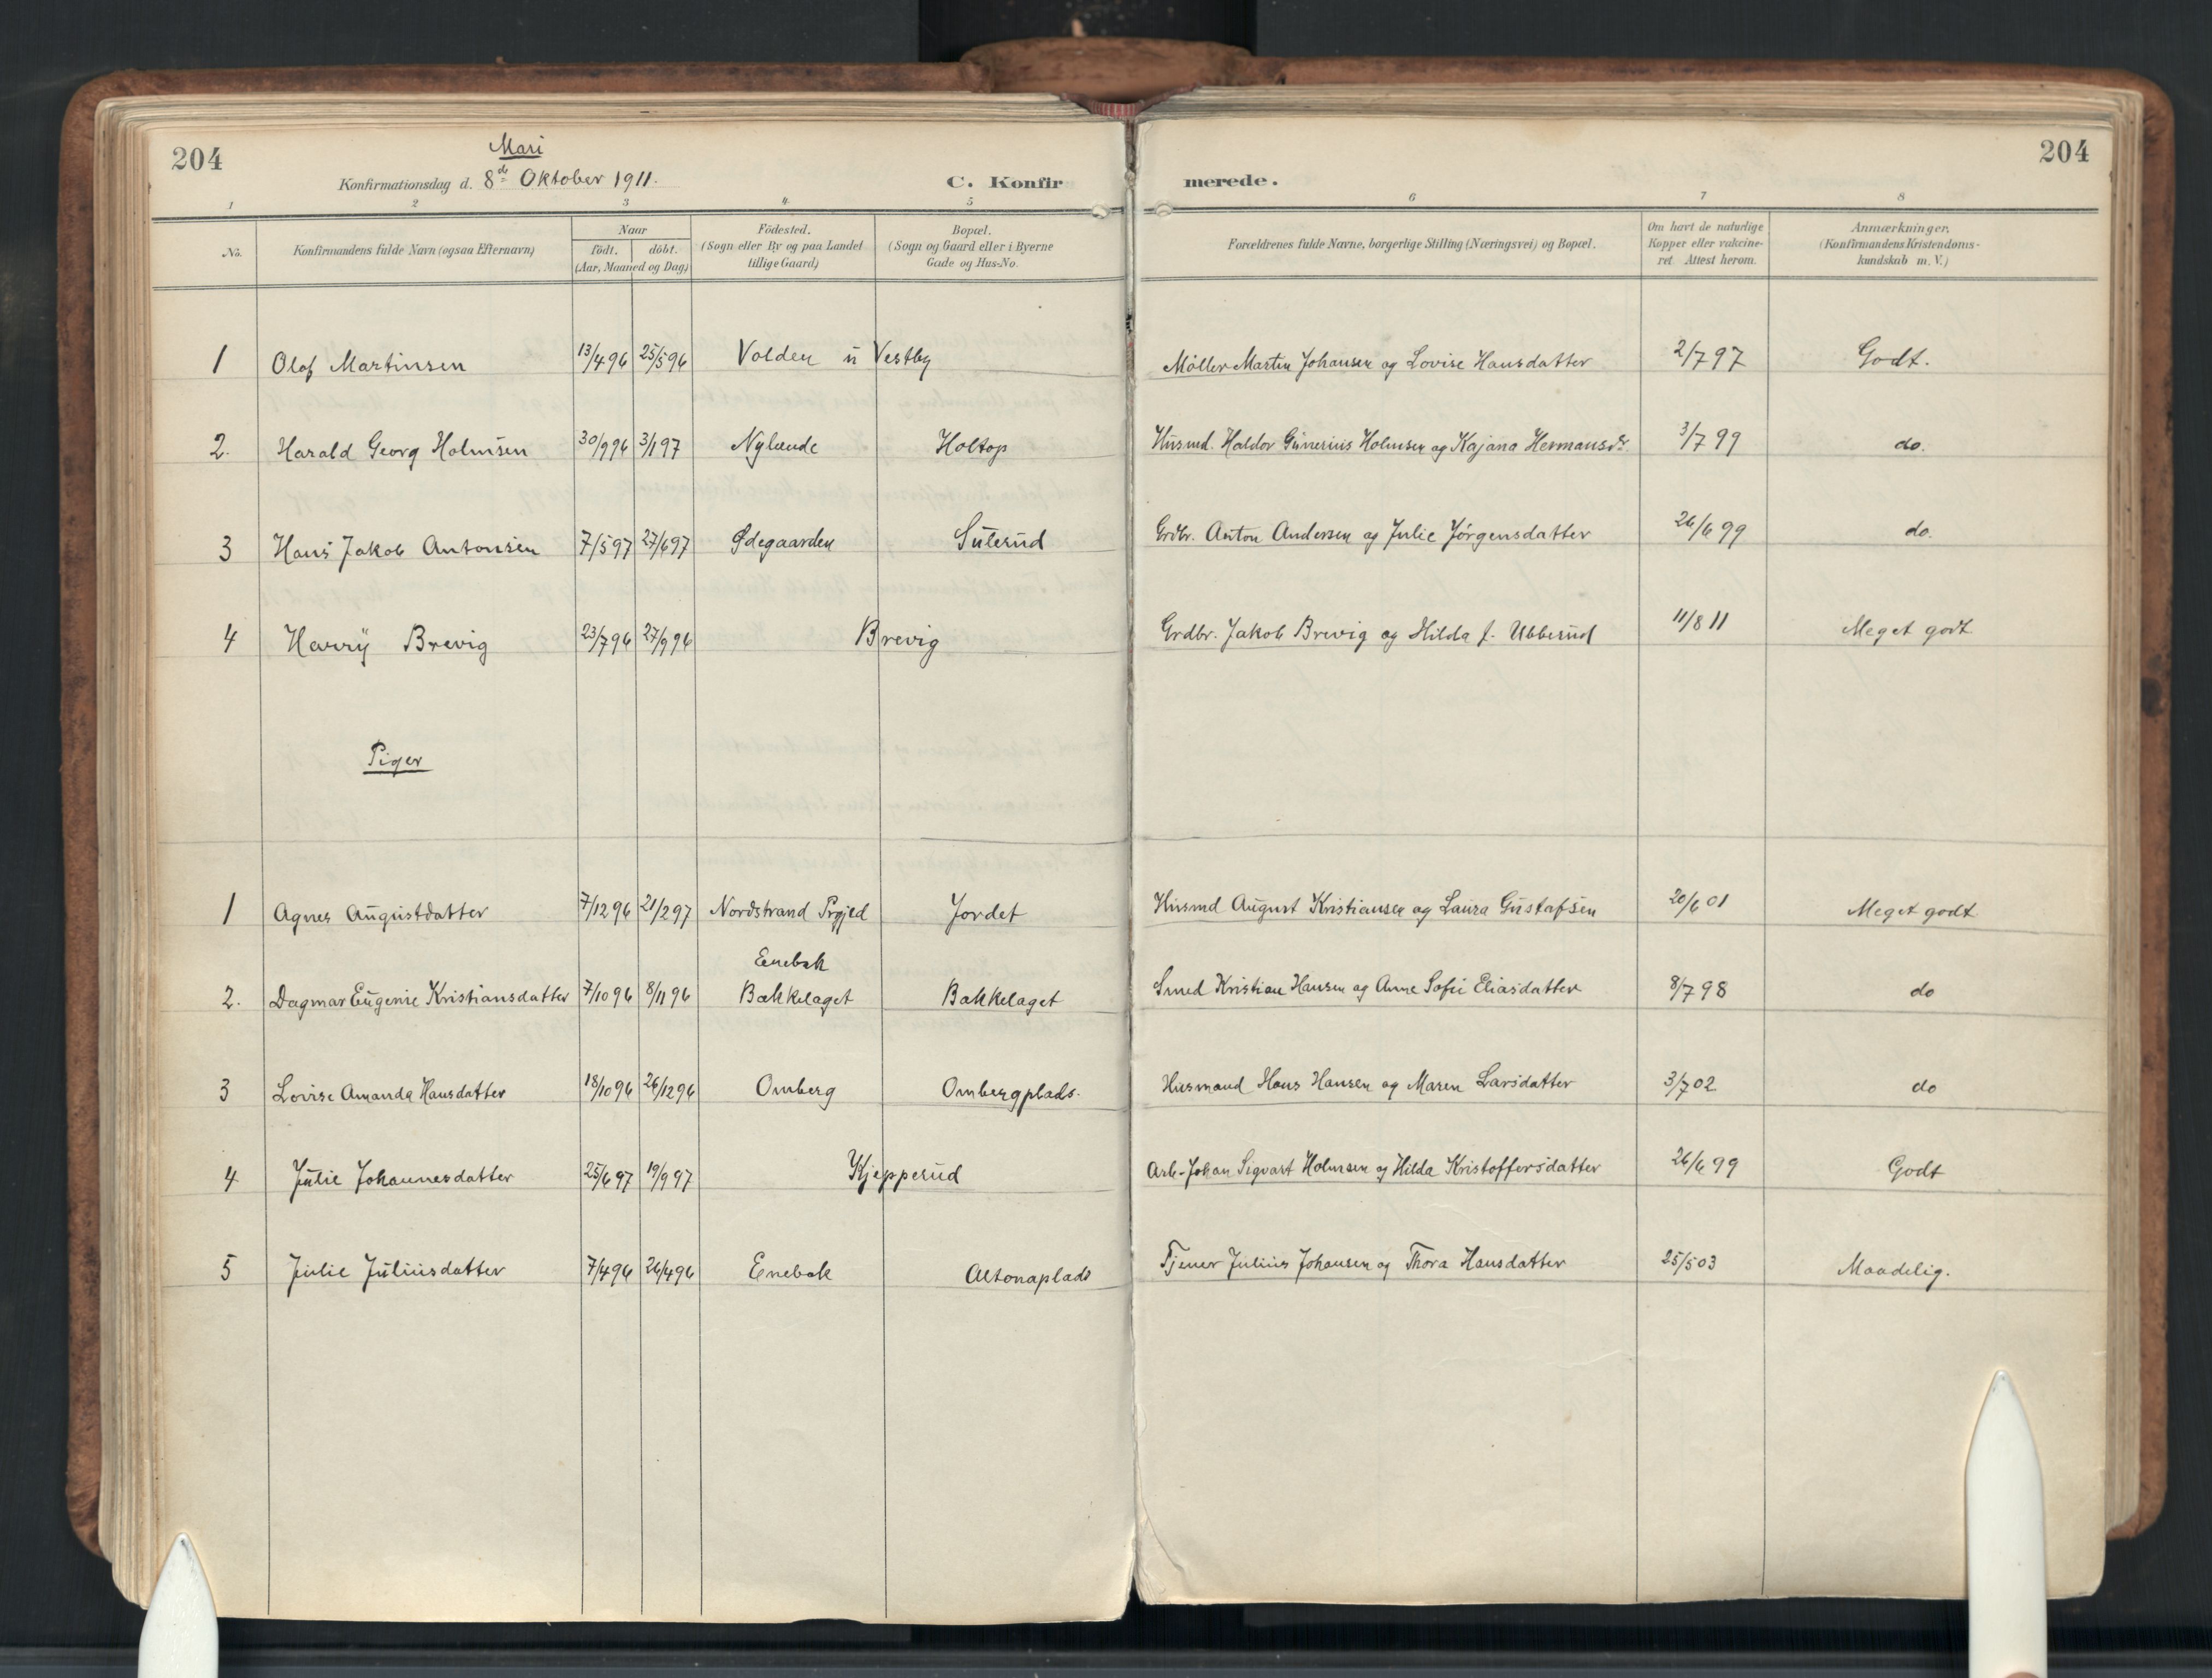 204
Mari
Konfirmationsdag d. 8de Oktober 1911.
C. Konfir
merede.
204
1 2 3 4 5 6 7 8
No. Konfirmandens fulde Navn (ogsaa Efternavn) Naar födt. döbt. (Aar, Maaned og Dag) Födested. (Sogn eller By og paa Landet tillige Gaard) Bopæl. (Sogn og Gaard eller i Byerne Gade og Hus-No. Forældrenes fulde Navne, borgerlige Stilling (Næringsvei) og Bopæl. Om havt de naturlige Kopper eller vakcineret. Attest herom. Anmærkninger. (Konfirmandens Kristendomskundskab m. V.)
1 Olaf Martinsen 13/4 96 25/5 96 Volden u Vestby Møller Martin Johansen og Lovise Hansdatter 2/7 97 Godt.
2. Harald Georg Holmsen 30/9 96 3/1 97 Nylænde Holtop Husmd. Haldor Gunerius Holmsen og Kajana Hermansdr. 3/7 99 do.
3 Hans Jakob Antonsen 7/5 97 27/6 97 Ødegaarden Sulerud Grdbr. Anton Andersen og Julie Jørgensdatter 26/6 99 do.
4 Harry Brevig 23/7 96 27/9 96 Brevig Grdbr. Jakob Brevig og Hilda f. Ubberud 11/8 11 Meget godt
Piger
1 Agnes Augustdatter 7/12 96 21/2 97 Nordstrand Prgjld Jordet Husmd August Kristiansen og Laura Gustafsen 20/6 01 Meget godt
Enebak
2. Dagmar Eugenie Kristiansdatter 7/10 96 8/11 96 Bakkelaget Bakkelaget Smed Kristian Hansen og Anne Sofie Eliasdatter 8/7 98 do
3 Lovise Amanda Hansdatter 18/10 96 26/12 96 Omberg Ombergplads. Husmand Hans Hansen og Maren Larsdatter 3/7 02 do
4 Julie Johannesdatter 25/6 97 19/9 97 Kjepperud Arb. Johan Sigvart Holmsen og Hilda Kristoffersdatter 26/6 99 Godt
5 Julie Juliusdatter 7/4 96 26/4 96 Enebak Altonaplads Tjener Julius Johansen og Thora Hansdatter 25/5 03 Maadelig.